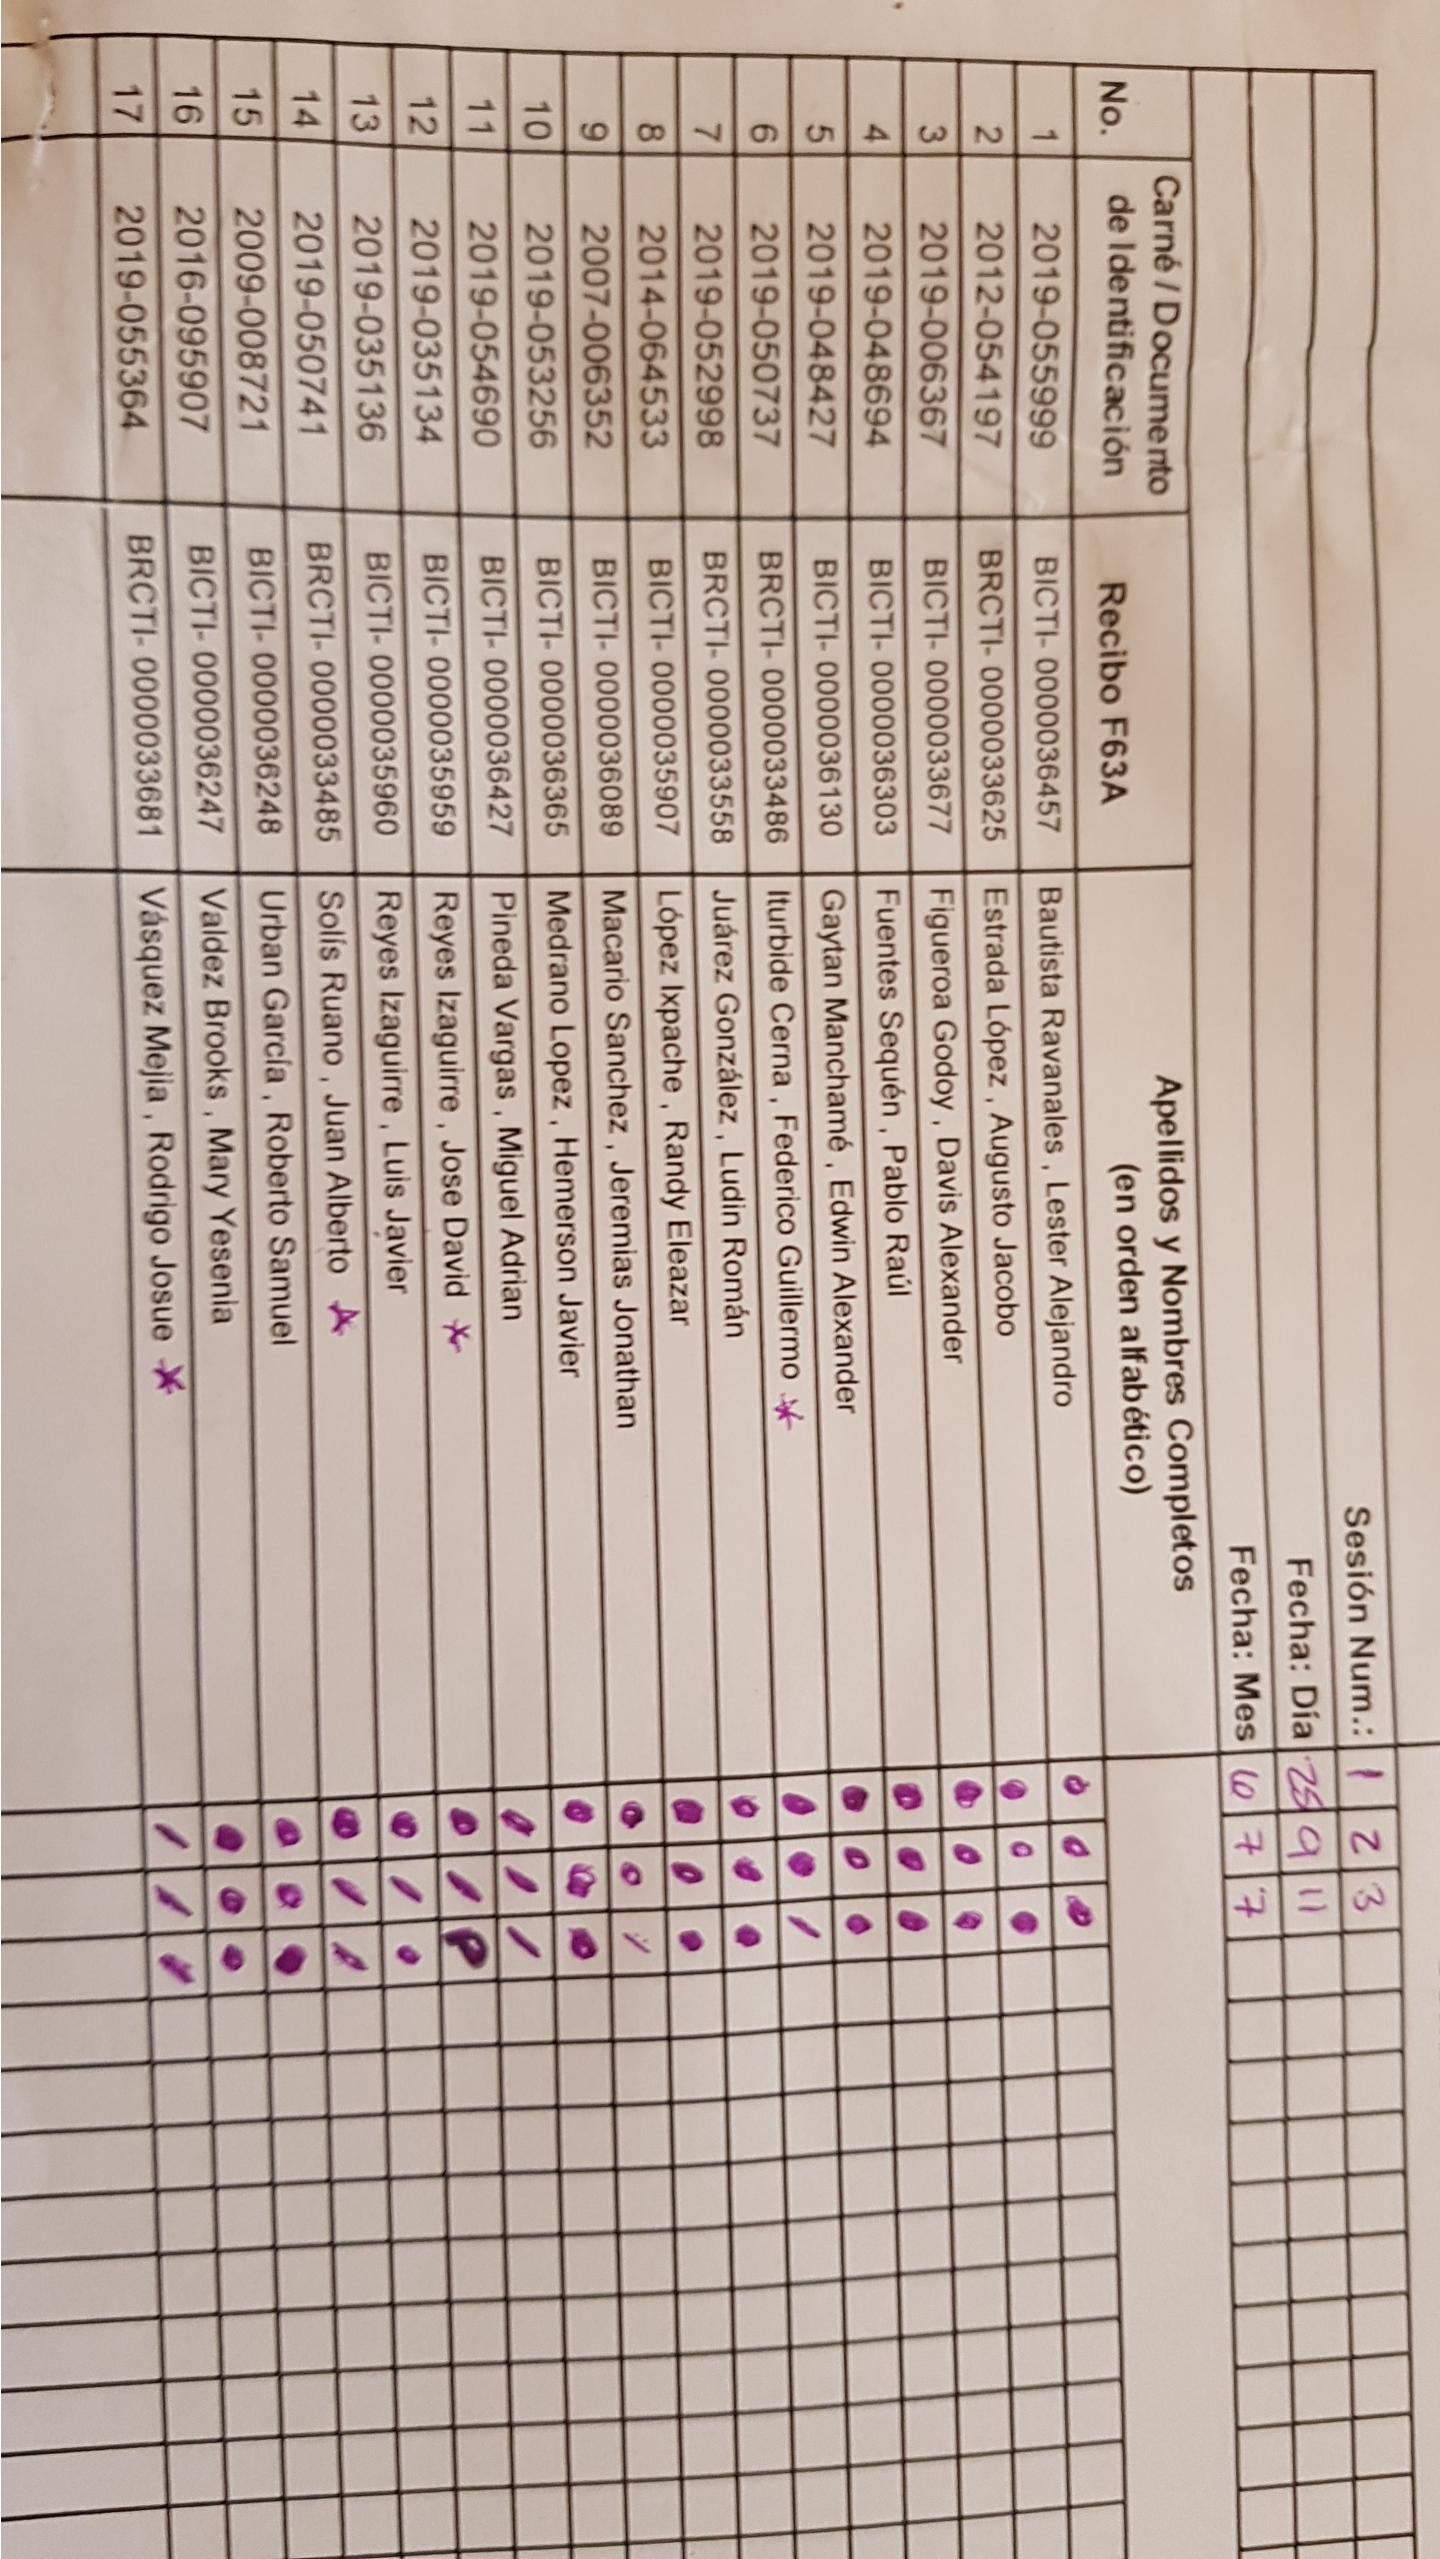 Sesión Num.: 1 2 3
Fecha: Día 28 9 11
Fecha: Mes 6 7 7
No. Carné / Documento de Identificación Recibo F63A Apellidos y Nombres Completos (en orden alfabético)
1 2019-055999 BICTI- 0000036457 Bautista Ravanales , Lester Alejandro
2 2012-054197 BRCTI- 0000033625 Estrada López , Augusto Jacobo
3 2019-006367 BICTI- 0000033677 Figueroa Godoy , Davis Alexander
4 2019-048694 BICTI- 0000036303 Fuentes Sequén , Pablo Raúl
5 2019-048427 BICTI- 0000036130 Gaytan Manchamé , Edwin Alexander
6 2019-050737 BRCTI- 0000033486 Iturbide Cerna , Federico Guillermo *
7 2019-052998 BRCTI- 0000033558 Juárez González , Ludin Román
8 2014-064533 BICTI- 0000035907 López Ixpache , Randy Eleazar
9 2007-006352 BICTI- 0000036089 Macario Sanchez , Jeremias Jonathan
10 2019-053256 BICTI- 0000036365 Medrano Lopez , Hemerson Javier
11 2019-054690 BICTI- 0000036427 Pineda Vargas , Miguel Adrian
12 2019-035134 BICTI- 0000035959 Reyes Izaguirre , Jose David * P
13 2019-035136 BICTI- 0000035960 Reyes Izaguirre , Luis Javier
14 2019-050741 BRCTI- 0000033485 Solís Ruano , Juan Alberto *
15 2009-008721 BICTI- 0000036248 Urban García , Roberto Samuel
16 2016-095907 BICTI- 0000036247 Valdez Brooks , Mary Yesenia
17 2019-055364 BRCTI- 0000033681 Vásquez Mejia , Rodrigo Josue *